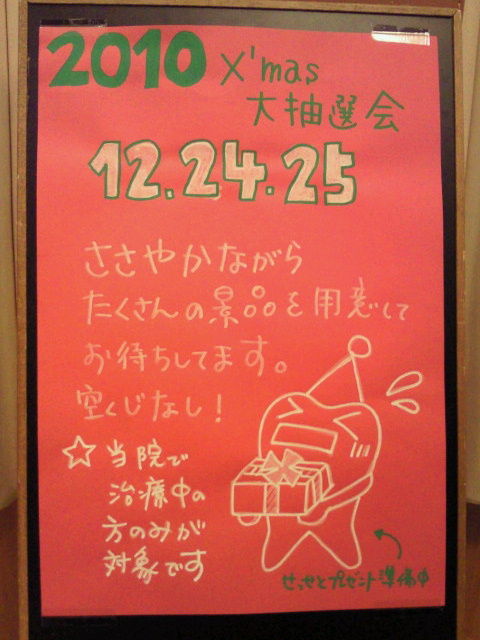 2010 X'mas
大抽選会
12.24.25
ささやかながら
たくさんの景品を用意して
お待ちしてます。
空くじなし！
☆当院で
治療中の
方のみが
対象です
せっせとプレゼント準備中